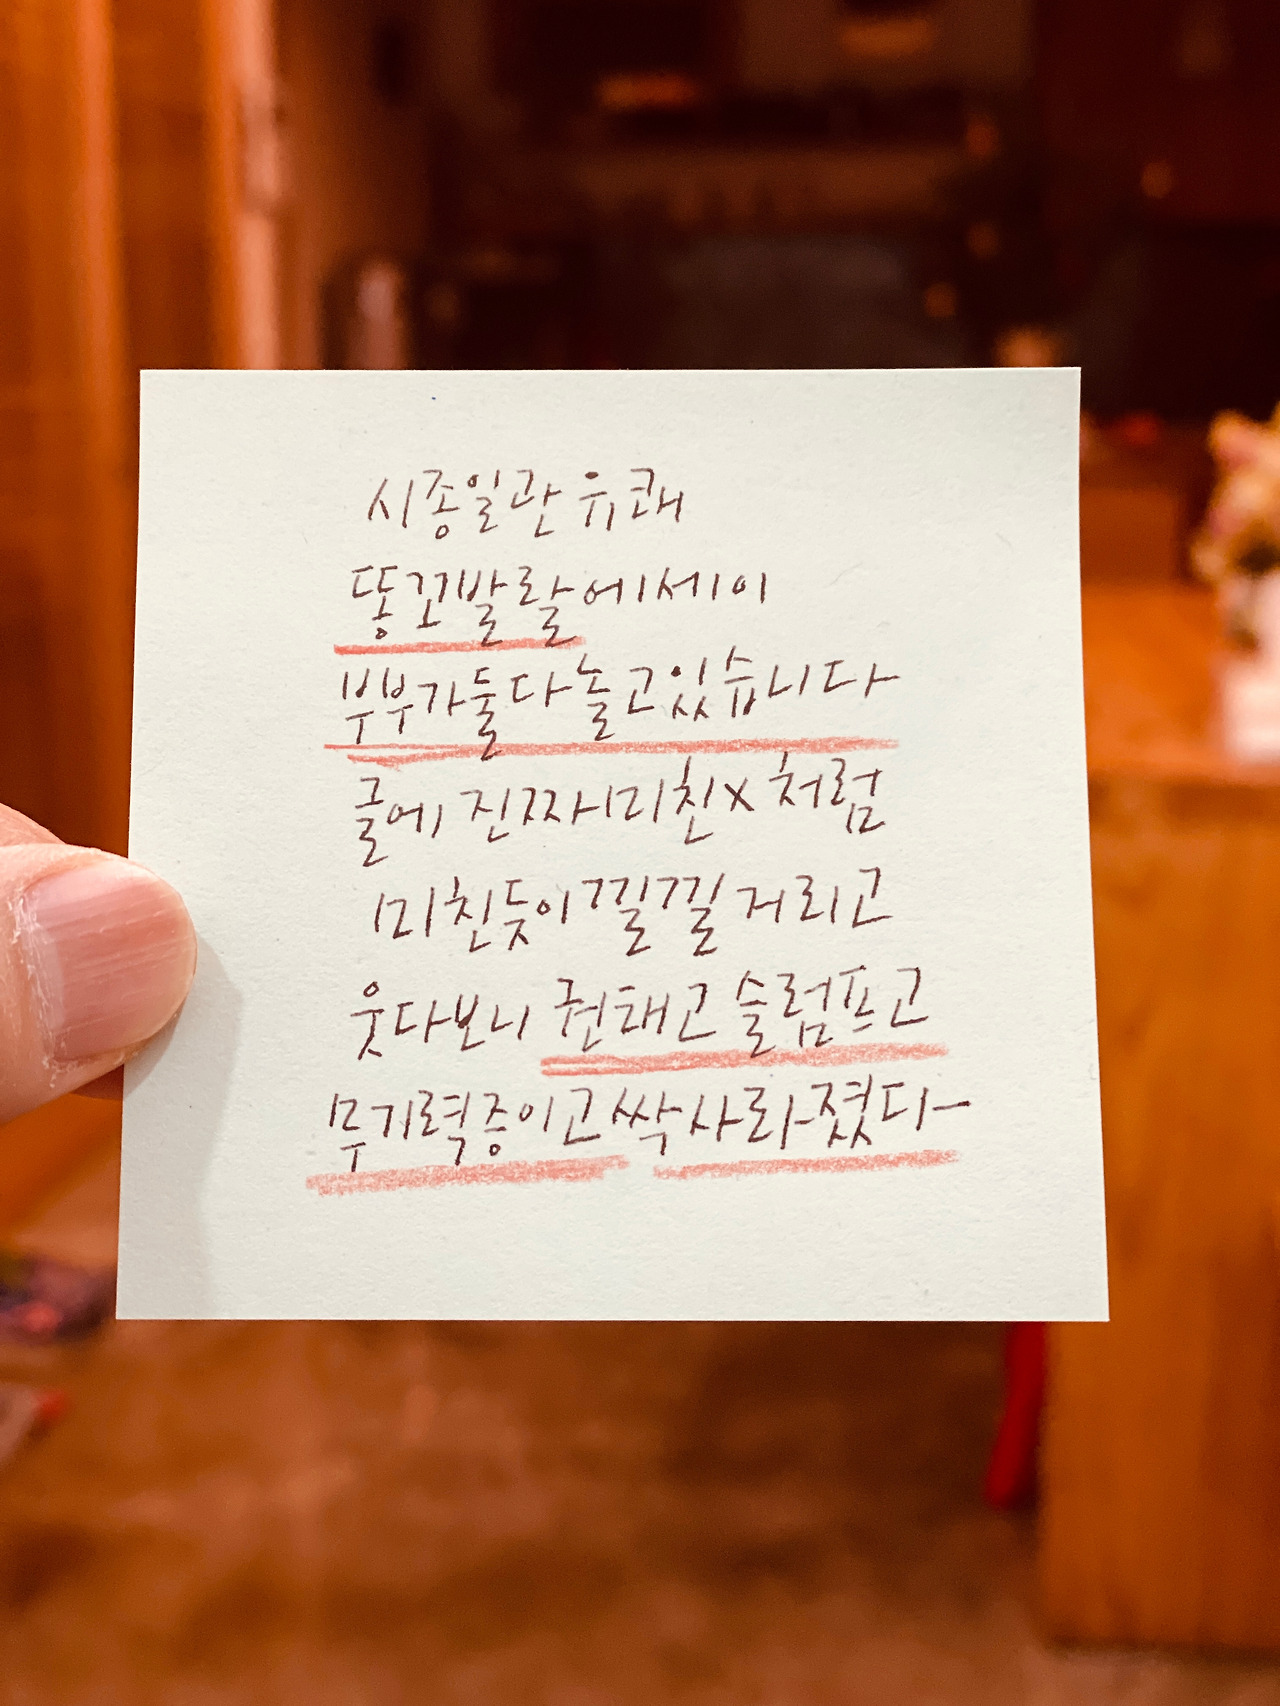 시종일관 유쾌
똥꼬발랄 에세이
부부가 둘 다 놀고 있습니다
글에 진짜 미친X처럼
미친듯이 낄낄 거리고
웃다보니 권태고 슬럼프고
무기력증이고 싹 사라졌다